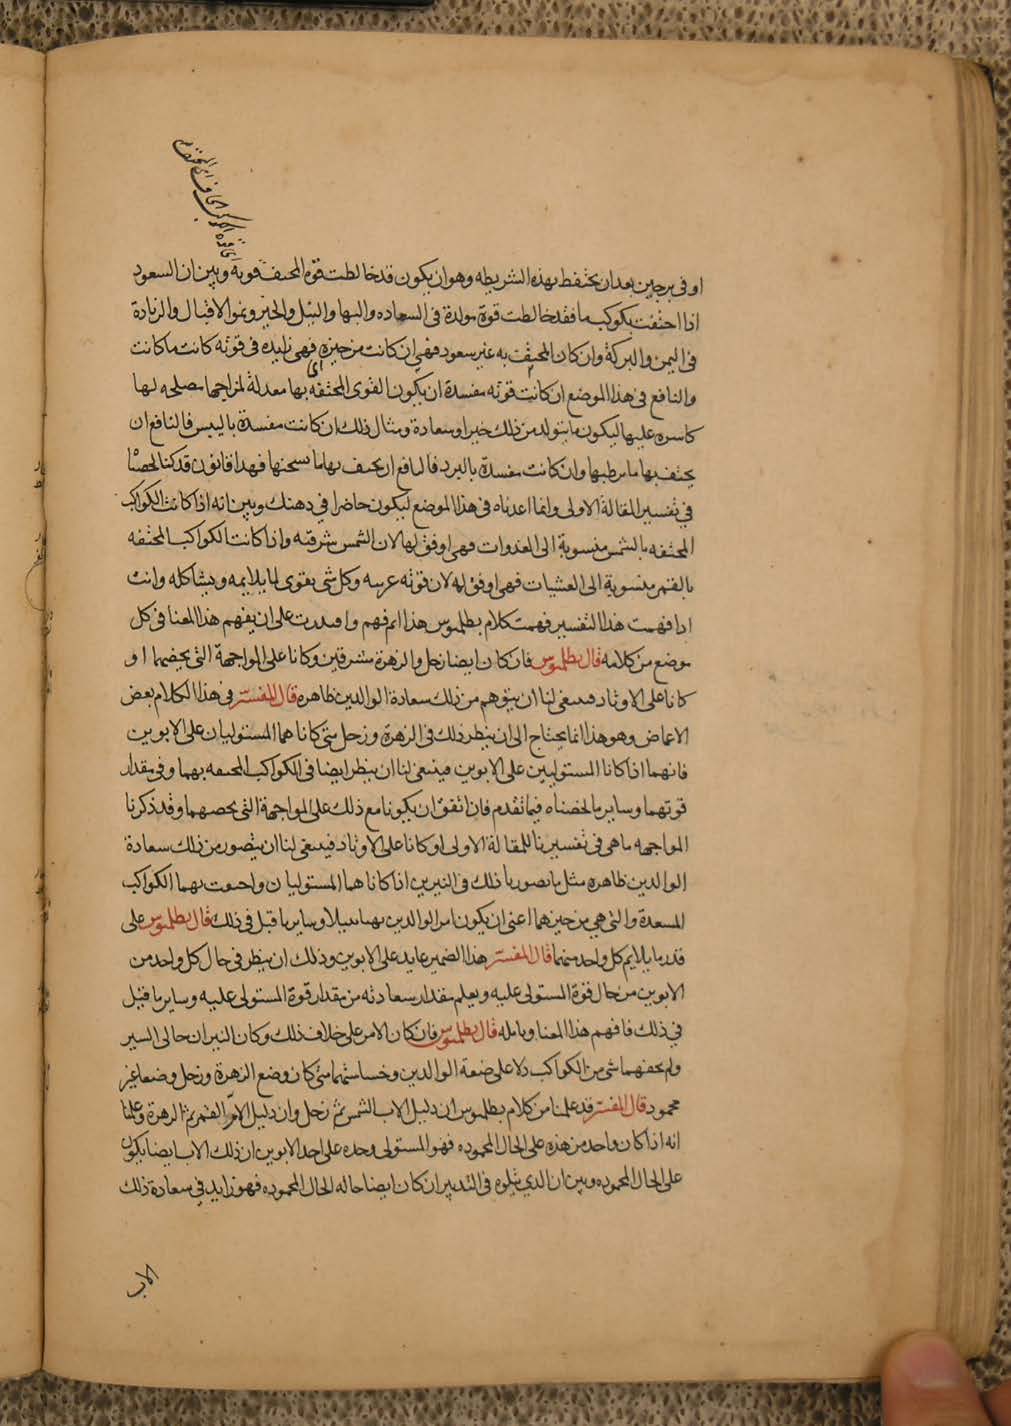 او فى برجين بعد ان يحتفظ بهذه الشريطه وهو ان يكون قد خالطت قوة المحتف قوته وبين ان السعود
اذا احتفت بكوكب ما فقد خالطت قوة مولدة فى السعاده والبها والنبل والخير ونمو الاقبال والزيادة
فى اليمن والبركة وان كان المحتف به غير سعود فهى ان كانت من حيزه فهى زايده فى قوته كانت ما كانت
والنافع فى هذا الموضع ان كانت قوته مفسدة ان يكون القوى المحتفه بها معدلة لمزاجها مصلحه لها
كاسره عليها ليكون ما يتولد من ذلك خيرا وسعادة ومثال ذلك ان كانت مفسدة باليبس فالنافع ان
يحتف بها ما يرطبها وان كانت مفسدة بالبرد فالنافع ان يحتف بها ما يسخنها فهذا قانون قد كنا لخصناه
فى تفسير المقالة الاولى وانما اعدناه فى هذا الموضع ليكون حاضرا فى ذهنك وبين انه اذا كانت الكواكب
المحتفه بالشمس منسوبة الى الغدوات فهى اوفق لها لان الشمس شرقيه واذا كانت الكواكب المحتفه
بالقمر منسوبة الى العشيات فهى اوفق له لان قوته غربيه وكل شى يقوى لما يلايمه ويشاكله وانت
اذا فهمت هذا التفسير فهمت كلام بطلميوس هذا اتم فهم واقتدرت على ان يفهم هذا المعنا فى كل
موضع من كلامه قال بطلميوس فان كان ايضا زحل والزهرة مشرقين وكانا على المواجهة التى يخصهما او
كانا على الاوتاد فينبغى لنا ان نتوهم من ذلك سعادة الوالدين ظاهره قال المفسر فى هذا الكلام بعض
الاغماض وهو هذا انما يحتاج الى ان ينظر ذلك فى الزهرة وزحل متى كانا هما المستوليان على الابوين
فانهما اذا كانا المستوليين على الابوين فينبغى لنا ان ينظر ايضا فى الكواكب المحتفه بهما وفى مقدار
قوتهما وساير ما لخصناه فيما تقدم فان اتفق ان يكونا مع ذلك على المواجهة التى يخصهما وقد ذكرنا
المواجهه ما هى فى تفسيرنا للمقالة الاولى او كانا على الاوتاد فينبغى لنا ان يتصور من ذلك سعادة
الوالدين ظاهره مثل ما تصورنا ذلك فى النيرين اذا كانا هما المستوليان واحتفت بهما الكواكب
المسعدة والتى هى من حيزهما اعنى ان يكون امر الوالدين نبيلا وساير ما قيل فى ذلك قال بطلميوس على
قدر ما يلايم كل واحد منهما قال المفسر هذا الضمير عايد على الابوين وذلك ان ينظر فى حال كل واحد من
الابوين من حال قوة المستولى عليه ويعلم مقدار سعادته من مقدار قوة المستولى عليه وساير ما قيل
فى ذلك فافهم هذا المعنا وتامله قال بطلميوس فان كان الامر على خلاف ذلك وكان النيران خالى السير
ولم يحفهما شى من الكواكب دلا على ضعة الوالدين وخساستهما متى كان وضع الزهرة وزحل وضعا غير
محمود قال المفسر قد علمنا من كلام بطلميوس ان دليل الاب الشمس ثم زحل وان دليل الام القمر ثم الزهرة وعلمنا
انه اذا كان واحد من هذه على الحال المحموده فهو المستولى وحده على احد الابوين ان ذلك الاب ايضا يكون
على الحال المحموده وبين ان الذى يتلوه فى التدبير ان كان ايضا حاله الحال المحموده فهو زايد فى سعادة ذلك
الاب